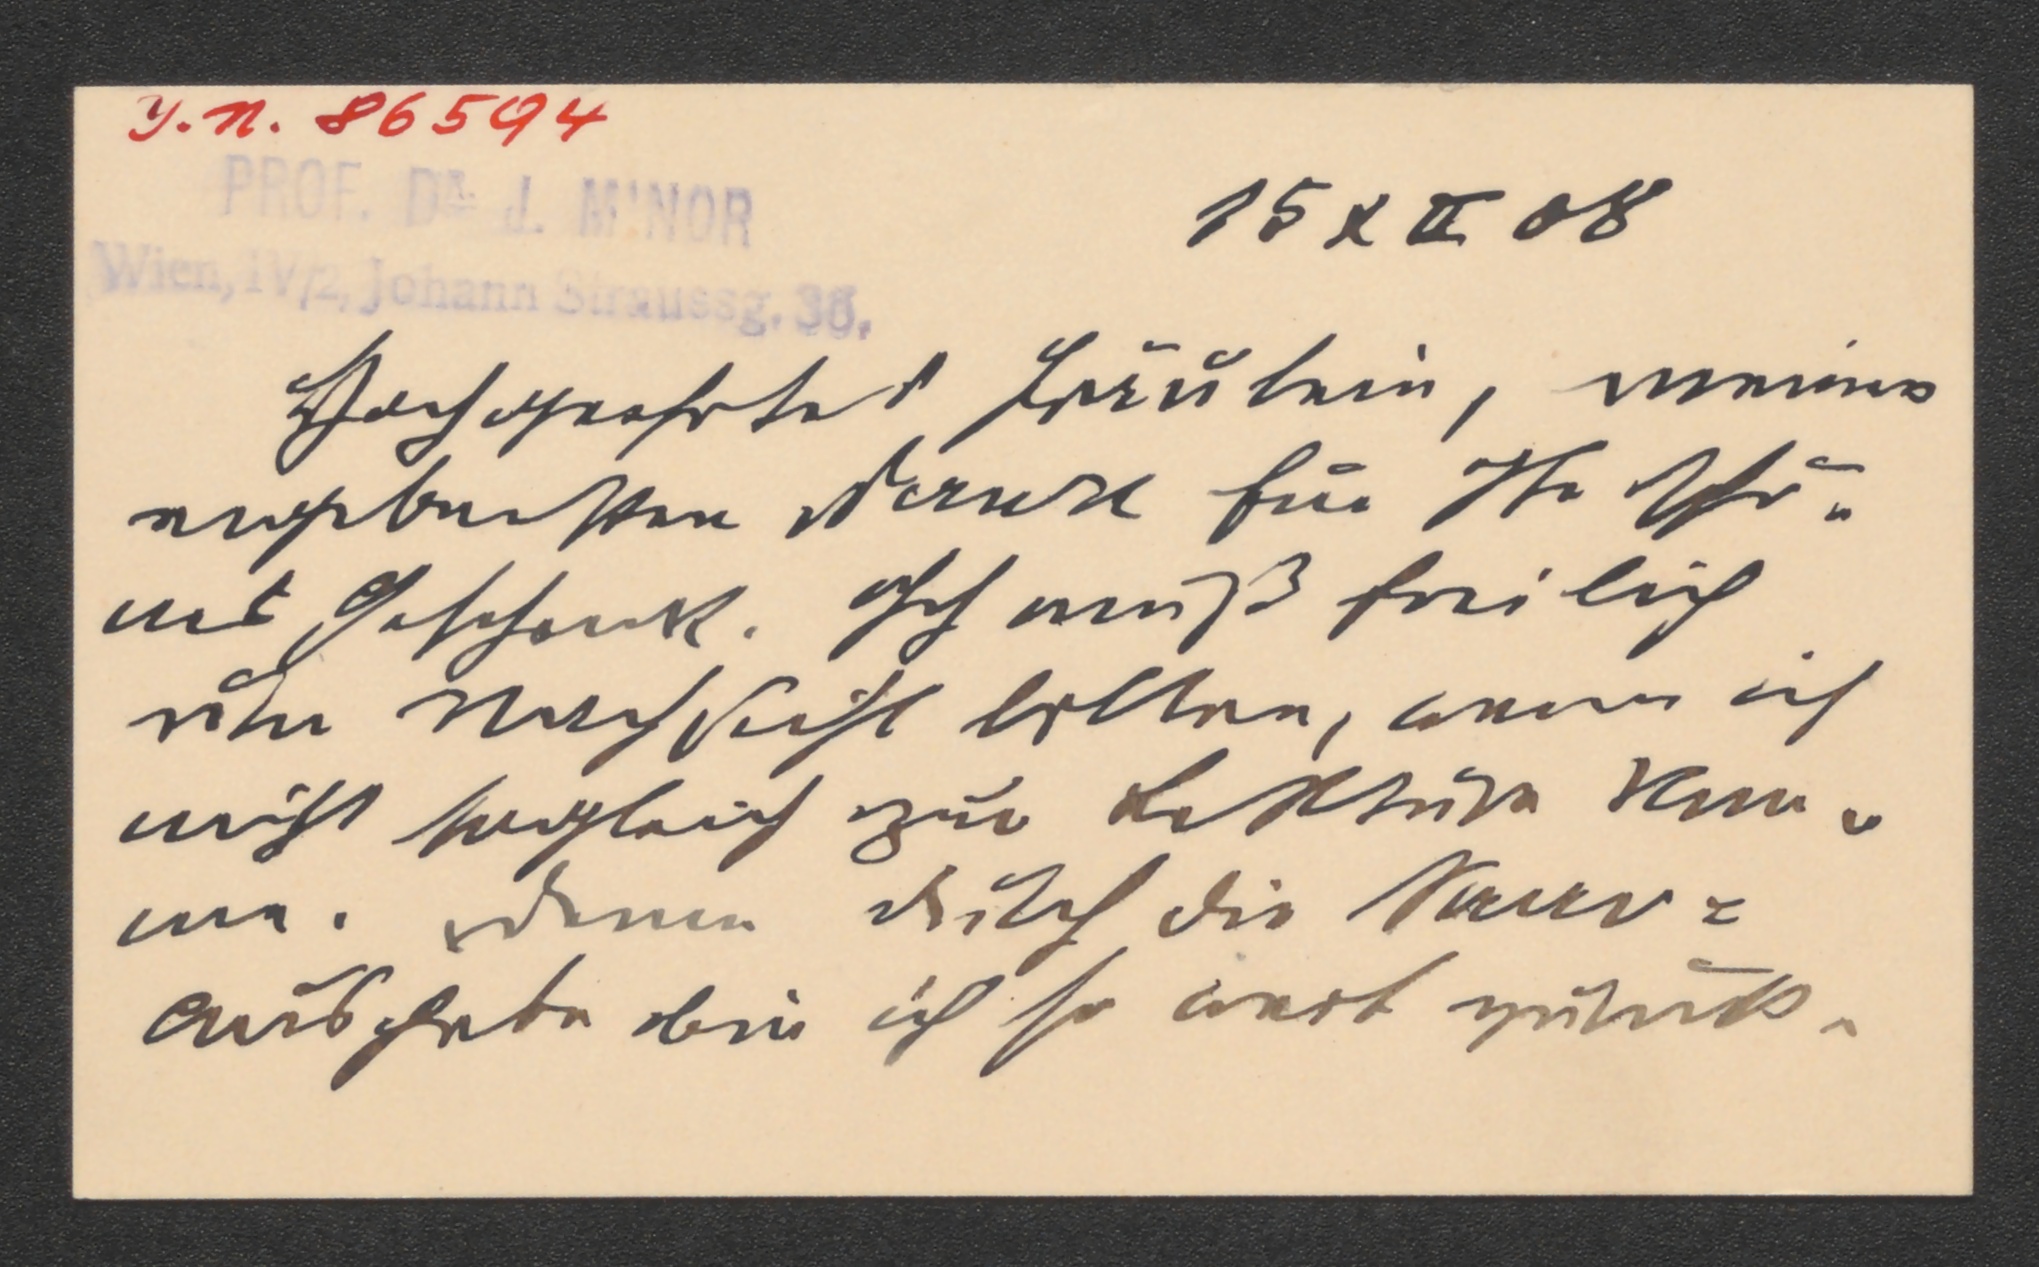 J.N. 86594
PROF. DR. J. MINOR
Wien, IV/2, Johann Straussg. 36.
15 XII 08
Hochgeehrtes Fräulein, meinen
ergebensten Dank für Ihr schö-
nes Geschenk. Ich muß freilich
um Nachsicht bitten, wenn ich
nicht sogleich zur Lektüre kom-
me. Denn durch die
ausgabe bin ich so weit zurück-